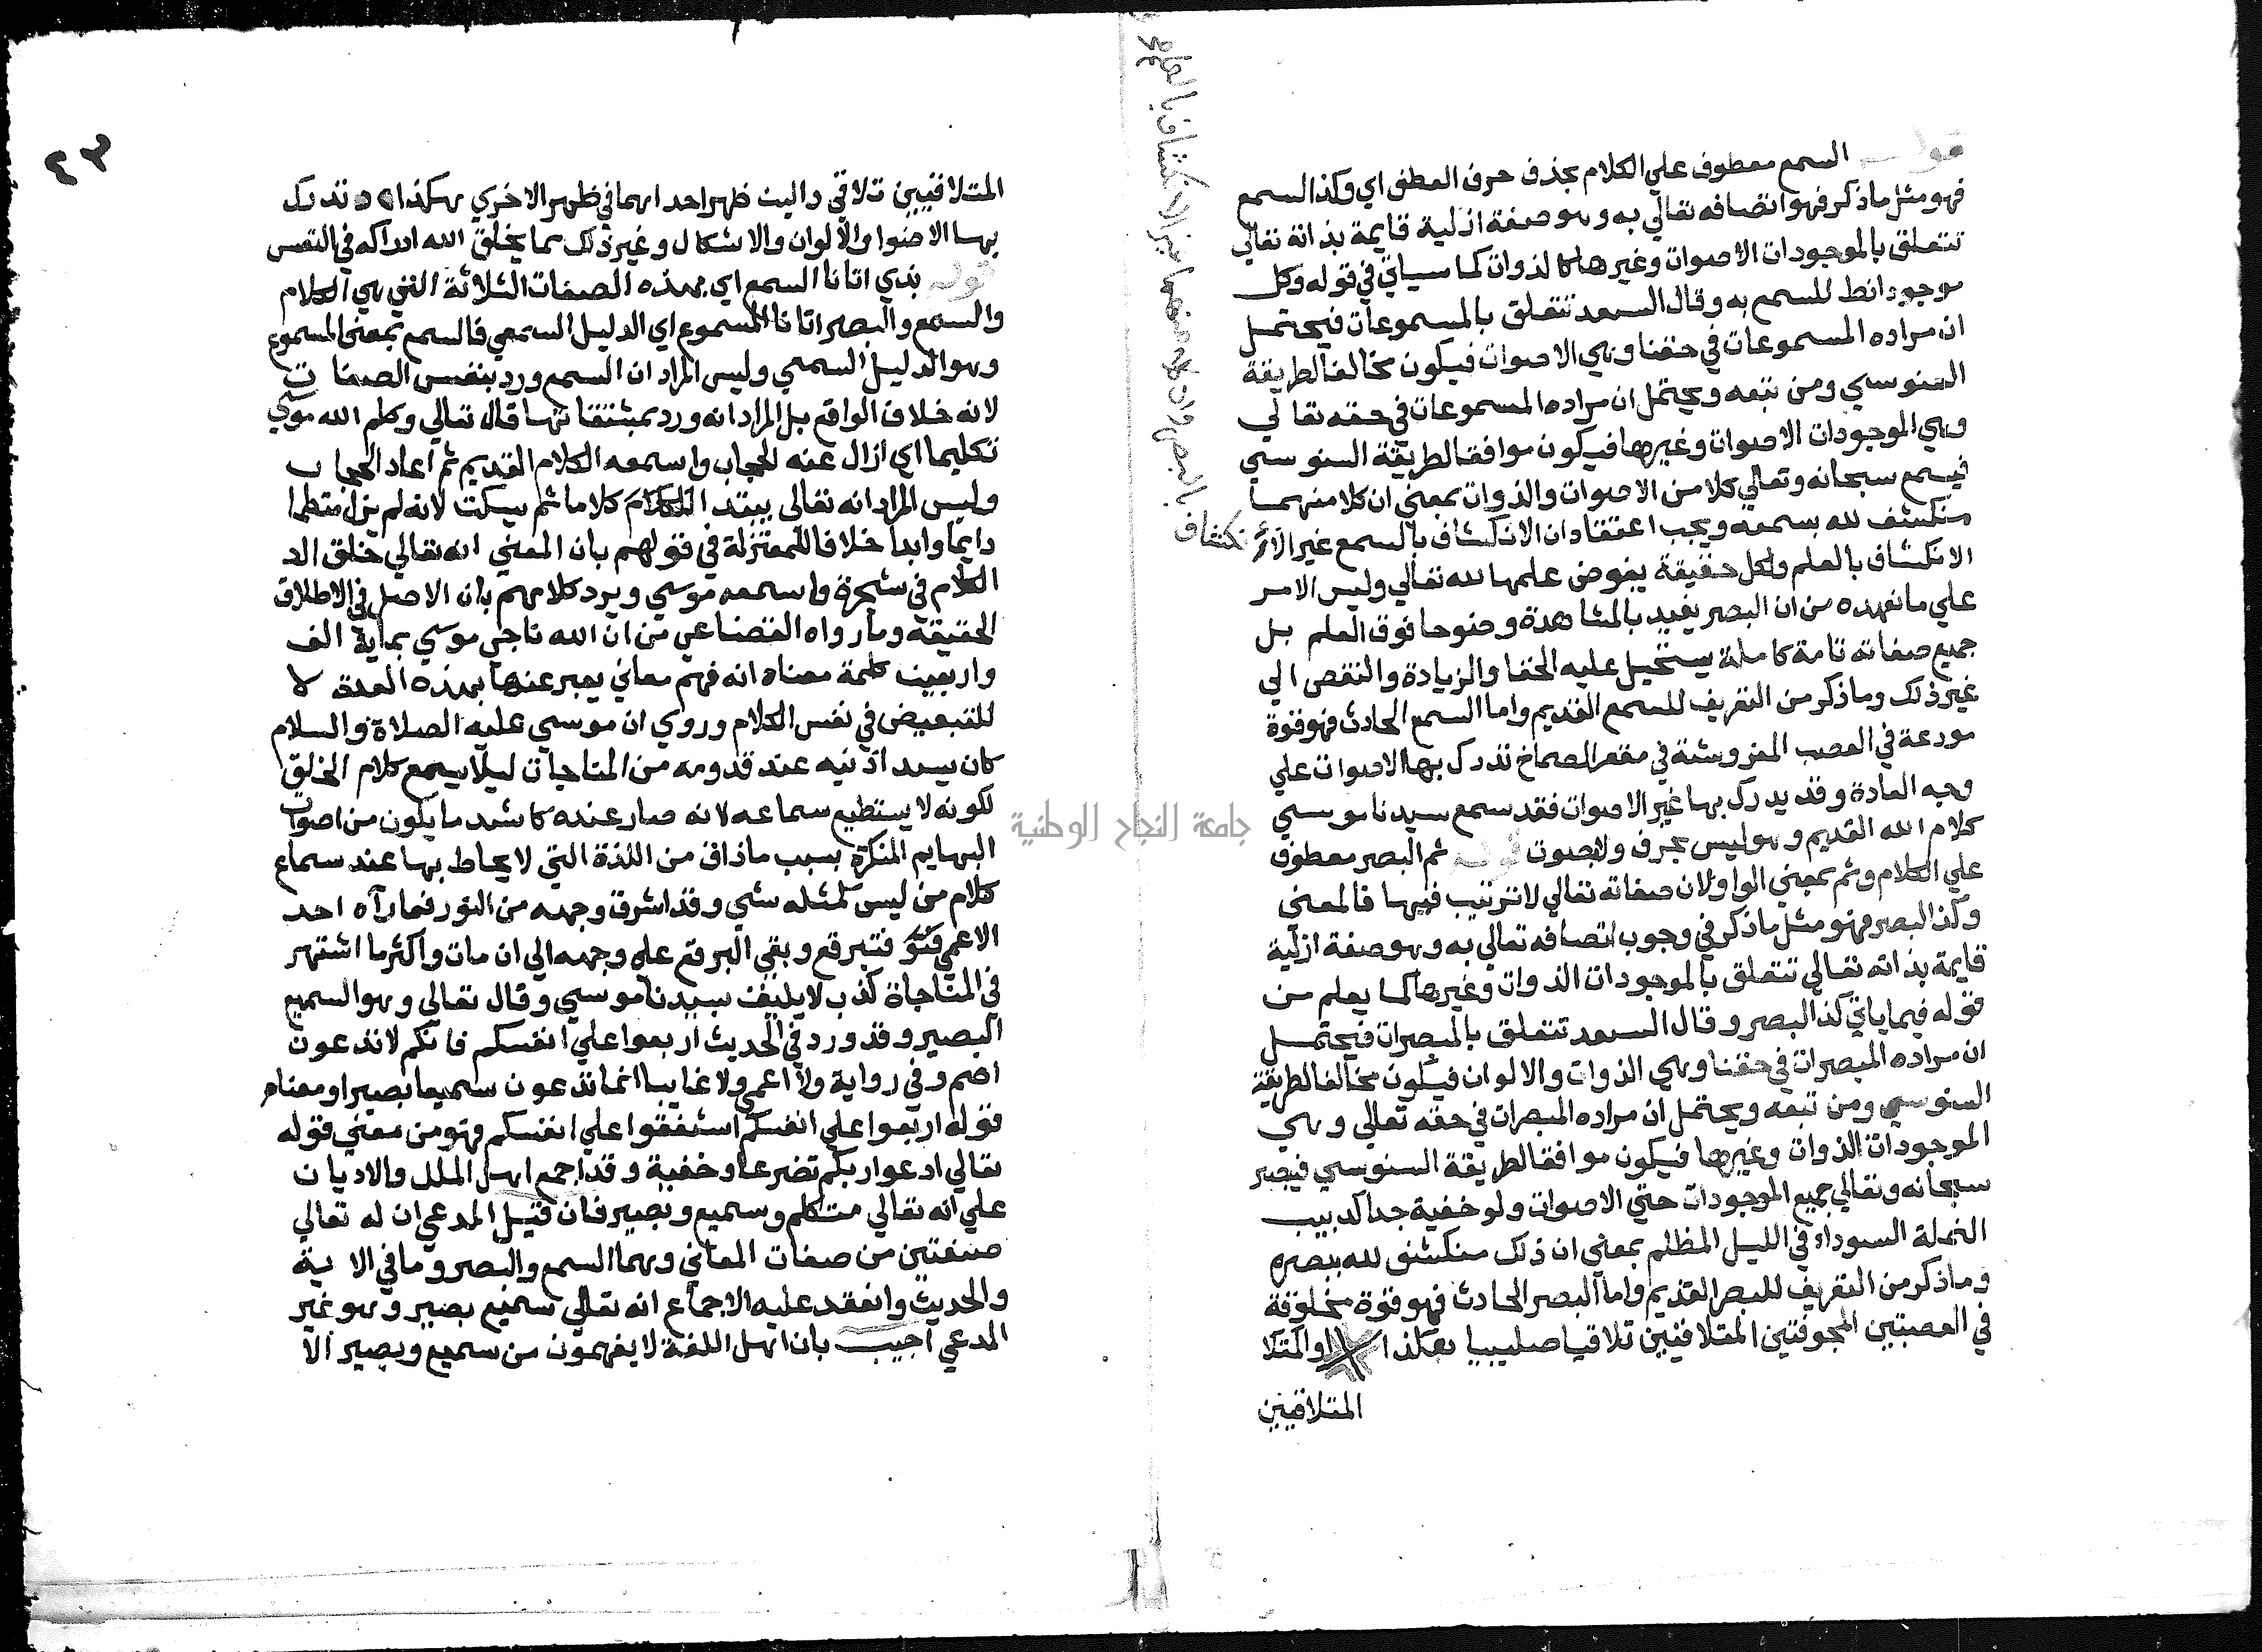 قوله السمع معطوف علي الكلام بحذف حرف العطف اي وكذا السمع
فهو مثل ما ذكر فهو اتصافه تعالي به وهو صفة ازلية قايمة بذاته تعالي
تتعلق بالموجودات الاصوات وغيرها كالذوات كما سياتي في قوله وكل
موجود انط للسمع به وقال السعد تتعلق بالمسموعات فيحتمل
ان مراده المسموعات في حقنا وهي الاصوات فيكون مخالفا لطريقة
السنوسي ومن تبعه ويحتمل ان مراده المسموعات في حقه تعالي
وهي الموجودات الاصوات وغيرها فيكون موافقا لطريقة السنوسي
فيسمع سبحانه وتعالي كلا من الاصوات والذوات بمعني ان كلا منهما
منكشف لله بسمعه ويجب اعتقاد ان الانكشاف بالسمع غير
الانكشاف بالعلم ولكل حقيقة يفوض علمها لله تعالي وليس الامر
علي ما نعهده من ان البصر يفيد بالمشاهدة وضوحا فوق العلم بل
جميع صفاته تامة كاملة يستحيل عليه الخفا والزيادة والنقص الي
غير ذلك وما ذكر من التعريف للسمع القديم واما السمع الحادث فهو قوة
مودعة في العصب المفروشة في مقعر الصماخ تدرك بها الاصوات علي
وجه العادة وقد يدرك بها غير الاصوات فقد سمع سيدنا موسي
كلام الله القديم وهو ليس بحرف ولا بصوت قوله ثم البصر معطوف
علي الكلام وثم بمعني الواو لان صفاته تعالي لا ترتيب فيها فالمعني
وكذا البصر فهو مثل ما ذكر في وجوب اتصافه تعالي به وهو صفة ازلية
قايمة بذاته تعالي تتعلق بالموجودات الذوات وغيرها كما يعلم من
قوله فيما ياتي كذا البصر وقال السعد تتعلق بالمبصرات فيحتمل
ان مراده المبصرات في حقنا وهي الذوات والالوان فيكون مخالفا لطريقة
السنوسي ومن تبعه ويحتمل ان مراده المبصرات في حقه تعالي وهي
الموجودات الذوات وغيرها فيكون موافقا لطريقة السنوسي فيبصر
سبحانه وتعالي جميع الموجودات حتي الاصوات ولو خفية جدا كدبيب
النملة السوداء في الليل المظلم بمعني ان ذلك منكشف لله ببصره
وما ذكر من التعريف للبصر القديم واما البصر الحادث فهو قوة مخلوقة
في العصبتين المجوفتين المتلاقيتين تلاقيا صليبيا هكذا او المتلا
المتلاقيتين
بالبصر وان لكل منهما غير الانكشاف بالعلم
٤٣
المتلاقيتين تلاقي دالين ظهر احداهما في ظهر الاخري هكذا تدرك
بها الاضوا والالوان والاشكال وغير ذلك مما يخلق الله ادراكه في النفس
قوله بذي اتانا السمع اي بهذه الصفات الثلاثة التي هي الكلام
والسمع والبصر اتانا المسموع اي الدليل السمعي فالسمع بمعني المسموع
وهو الدليل السمعي وليس المراد ان السمع ورد بنفس الصفات
لانه خلاف الواقع بل المراد انه ورد بمشتقاتها قال تعالي وكلم الله موسي
تكليما اي ازال عنه الحجاب واسمعه الكلام القديم ثم اعاد الحجاب
وليس المراد انه تعالي يبتدا الكلام كلاما ثم يسكت لانه لم يزل متكلما
دايما وابدا خلافا للمعتزلة في قولهم بان المعني انه تعالي خلق الـ
الكلام في شجرة واسمعه موسي ويرد كلامهم بان الاصل في الاطلاق
الحقيقة وما رواه القضاعي من ان الله ناجي موسي بماية الف
واربعين كلمة معناه انه فهم معاني يعبر عنها بهذه العدة لا
للتبعيض في نفس الكلام وروي ان موسي عليه الصلاة والسلام
كان يسد اذنيه عند قدومه من المناجات ليلا يسمع كلام الخلق
لكونه لا يستطيع سماعه لانه صار عنده كاشد ما يكون من اصوات
البهايم المنكرة بسبب ما ذاق من اللذة التي لا يحاط بها عند سماع
كلام من ليس كمثله شي وقد اشرق وجهه من النور فما رآه احد
الاعمي فتبرقع وبقي البرقع علي وجهه الي ان مات واكثر ما اشتهر
في المناجاة كذب لا يليق بسيدنا موسي وقال تعالي وهو السميع
البصير وقد ورد في الحديث اربعوا علي انفسكم فانكم لا تدعون
اصم وفي رواية ولا اعمي ولا غايبا انما تدعون سميعا بصيرا ومعناه
قوله اربعوا علي انفسكم اشفقوا علي انفسكم فهو من معني قوله
تعالي ادعوا ربكم تضرعا وخفية وقد اجمع اهل الملل والاديان
علي انه تعالي متكلم وسميع وبصير فان قيل المدعي ان له تعالي
صفتين من صفات المعاني وهما السمع والبصر وما في الاية
والحديث وانعقد عليه الاجماع انه تعالي سميع بصير وهو غير
المدعي اجيب بان اهل اللغة لا يفهمون من سميع وبصير الا
جامعة النجاح الوطنية